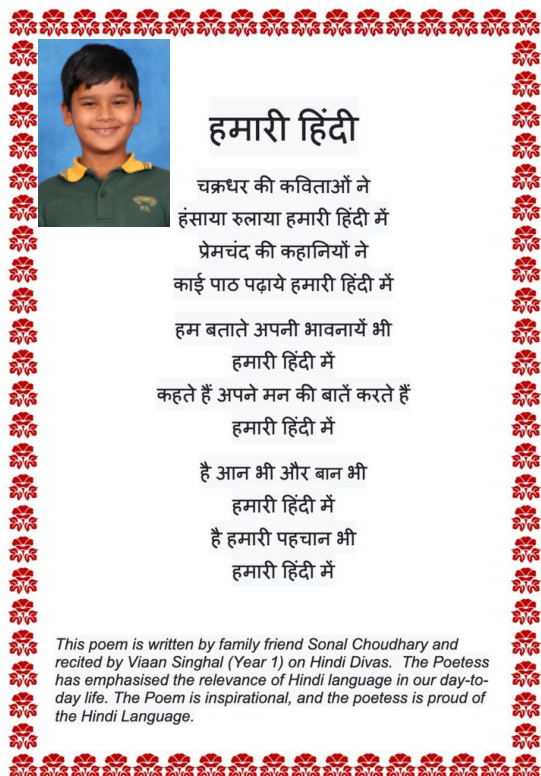 हमारी हिंदी
चक्रधर की कविताओं ने
हंसाया रुलाया हमारी हिंदी में
प्रेमचंद की कहानियों ने
काई पाठ पढ़ाये हमारी हिंदी में
हम बताते अपनी भावनायें भी
हमारी हिंदी में
कहते हैं अपने मन की बातें करते हैं
हमारी हिंदी में
है आन भी और बान भी
हमारी हिंदी में
है हमारी पहचान भी
हमारी हिंदी में
This poem is written by family friend Sonal Choudhary and
recited by Viaan Singhal (Year 1) on Hindi Divas.  The Poetess
has emphasised the relevance of Hindi language in our day-to-
day life. The Poem is inspirational, and the poetess is proud of
the Hindi Language.